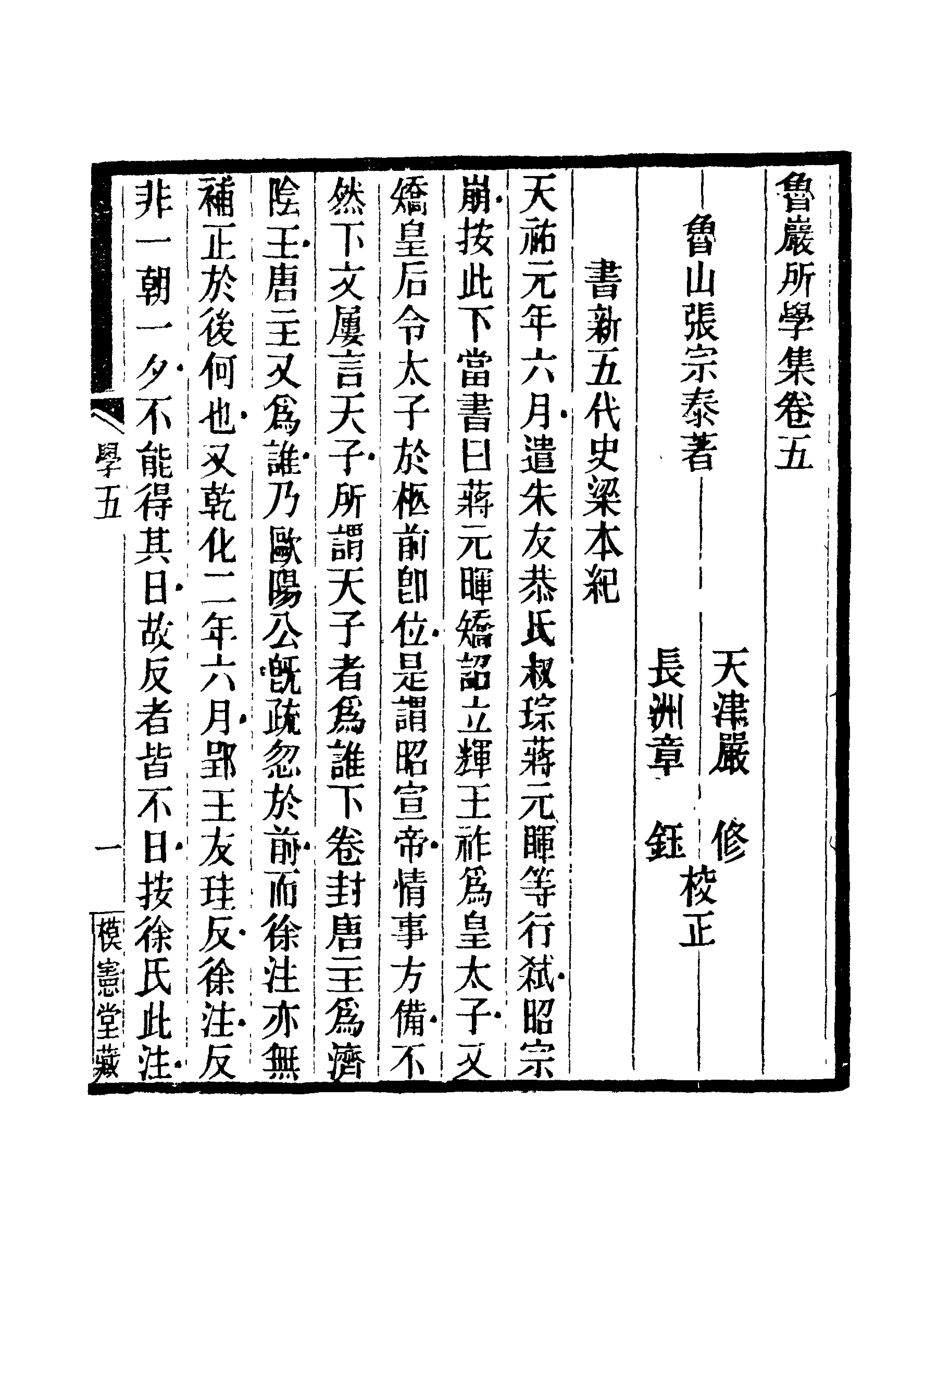 魯巖所學集卷五
魯山張宗泰著
天津嚴　修
長洲章　鈺
校正
書新五代史梁本紀
天祐元年六月遣朱友恭氏叔琮蔣元暉等行弑昭宗
崩按此下當書曰蔣元暉矯詔立輝王祚爲皇太子又
矯皇后令太子於柩前卽位是謂昭宣帝情事方備不
然下文屢言天子所謂天子者爲誰下卷封唐主爲濟
陰王唐主又爲誰乃歐陽公旣疏忽於前而徐注亦無
補正於後何也又乾化二年六月郢王友珪反徐注反
非一朝一夕不能得其日故反者皆不日按徐氏此注
學五
一
模憲堂藏